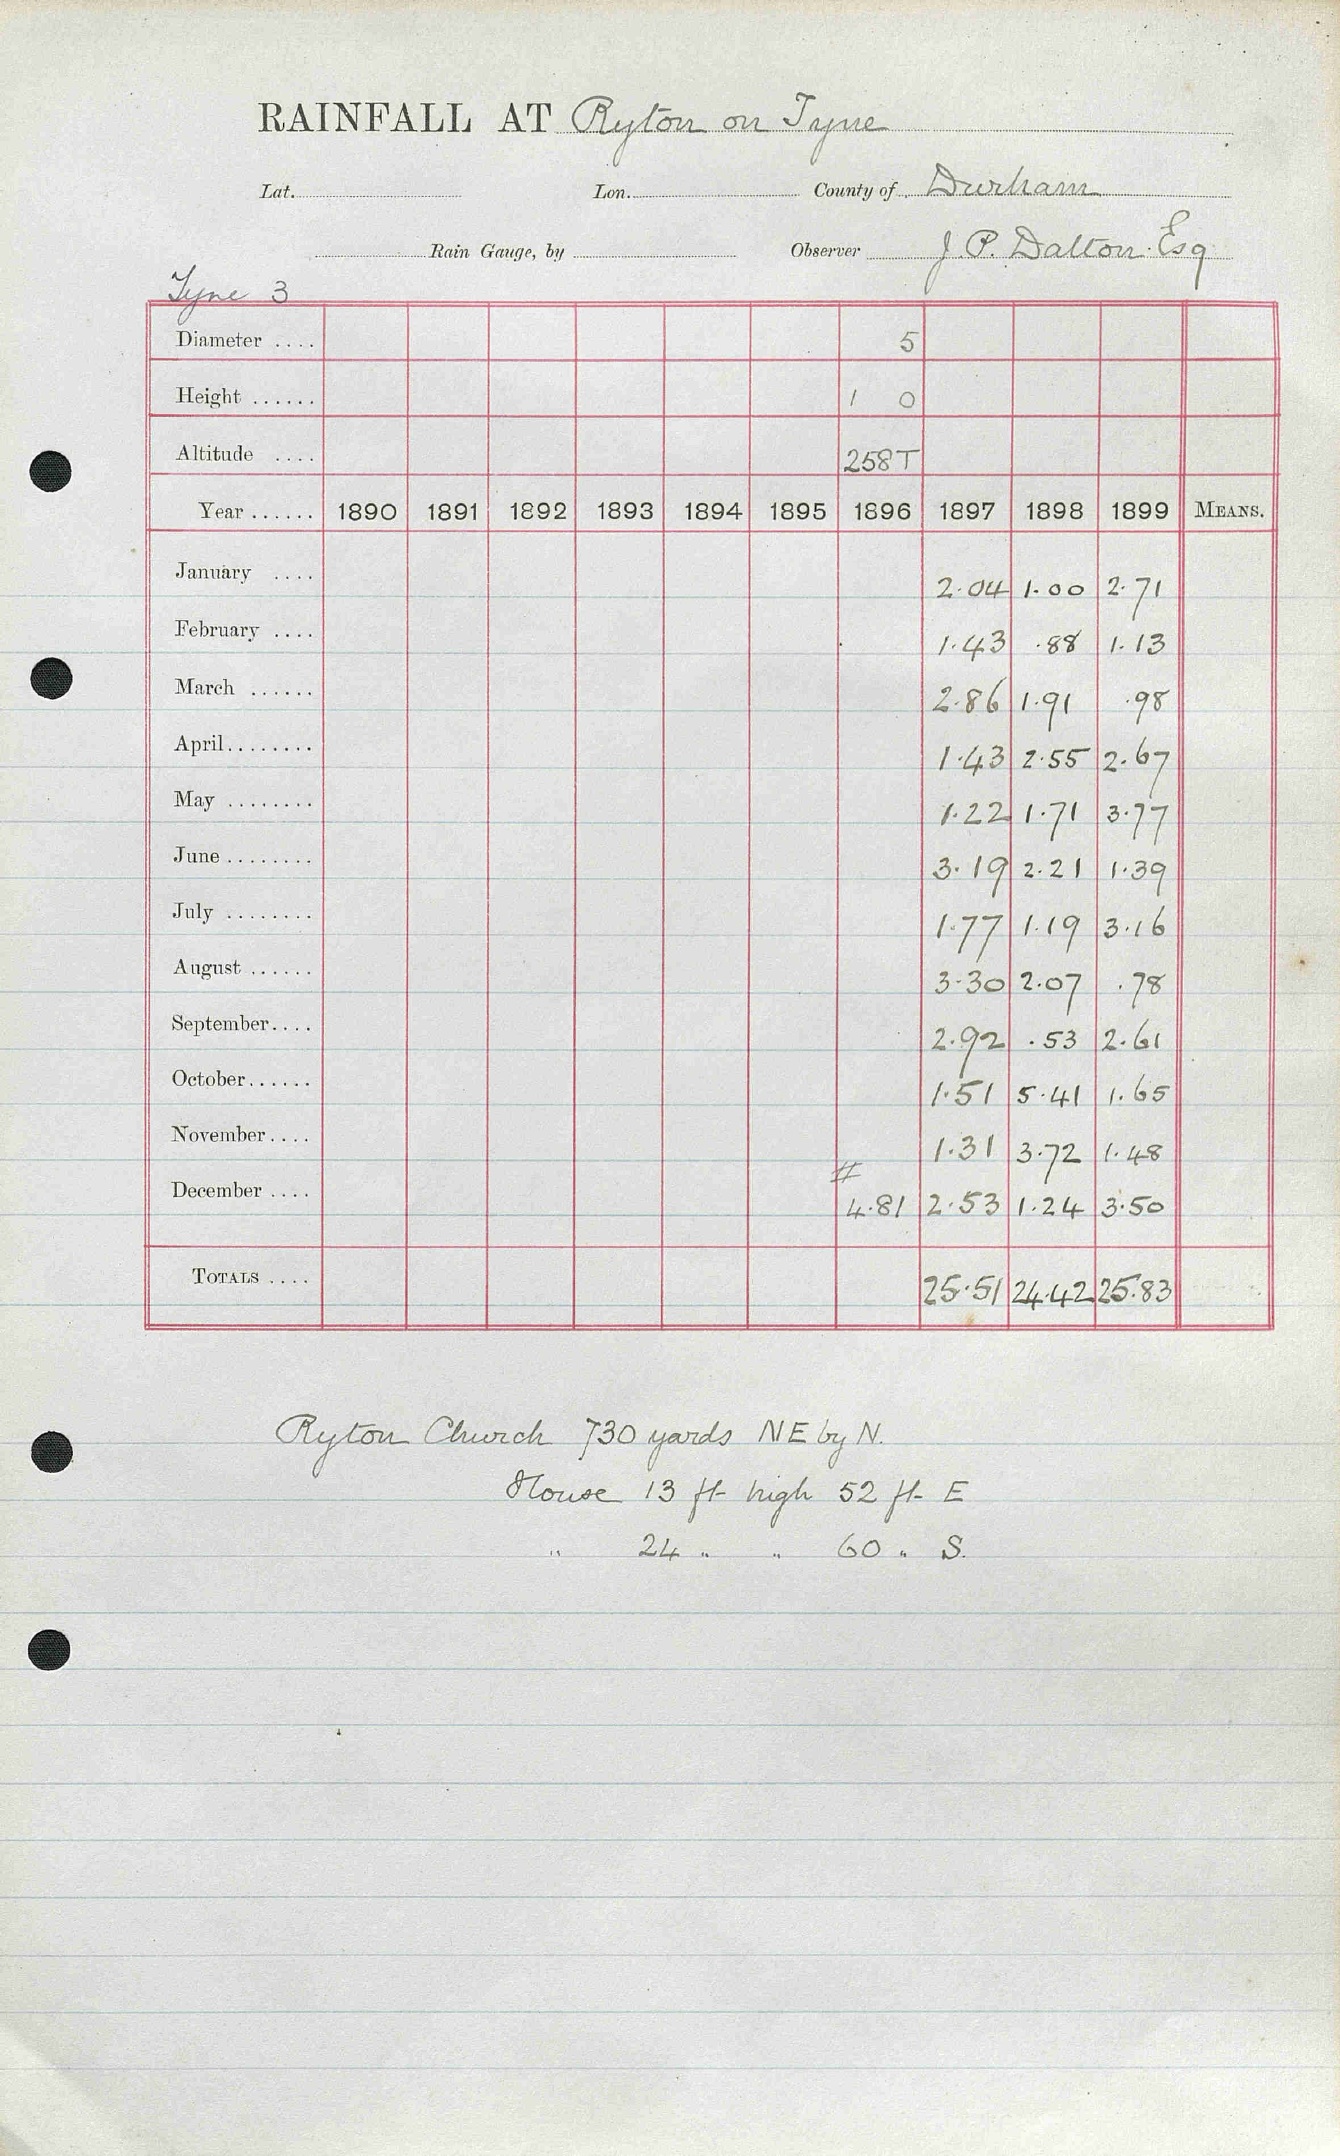 RAINFALL AT Ryton on Tyne
Lat. Lon. County of Durham
Rain Gauge, by Observer J. P. Dalton Esq
Tyne 3
Diameter .... 5
Height ...... 1 0
Altitude .... 258 T
Year ...... 1890 1891 1892 1893 1894 1895 1896 1897 1898 1899 MEANS.
January .... 2.04 1.00 2.71
February .... 1.43 .88 1.13
March ...... 2.86 1.91 .98
April........ 1.43 2.55 2.67
May ........ 1.22 1.71 3.77
June ........ 3.19 2.21 1.39
July ........ 1.77 1.19 3.16
August ...... 3.30 2.07 .78
September.... 2.92 .53 2.61
October...... 1.51 5.41 1.65
November.... 1.31 3.72 1.48
#
December .... 4.81 2.53 1.24 3.50
TOTALS .... 25.51 24.42 25.83
Ryton Church 730 yards NE by N.
House 13 ft high 52 ft E
" 24 " " 60 " S.